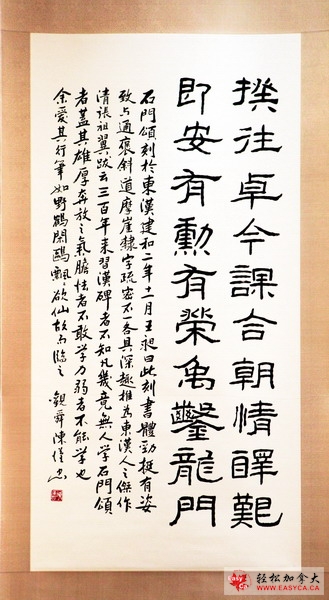 揆往卓今謀合朝情醳艱
即安有勳有榮禹鑿龍門
石門頌刻於東漢建和二年十一月王昶曰此刻書體勁挺有姿
致与通褒斜道摩崖隸字疏密不一各具深趣推為東漢人之傑作
清張祖翼跋云三百年來習漢碑者不知凡幾竟無人学石門頌
者蓋其雄厚奔放之氣膽怯者不敢学力弱者不能学也
余愛其行筆如野鶴閑鷗飄〻欲仙故为臨之 觀舜陳
轻松加拿大
WWW.EASYCA.CA